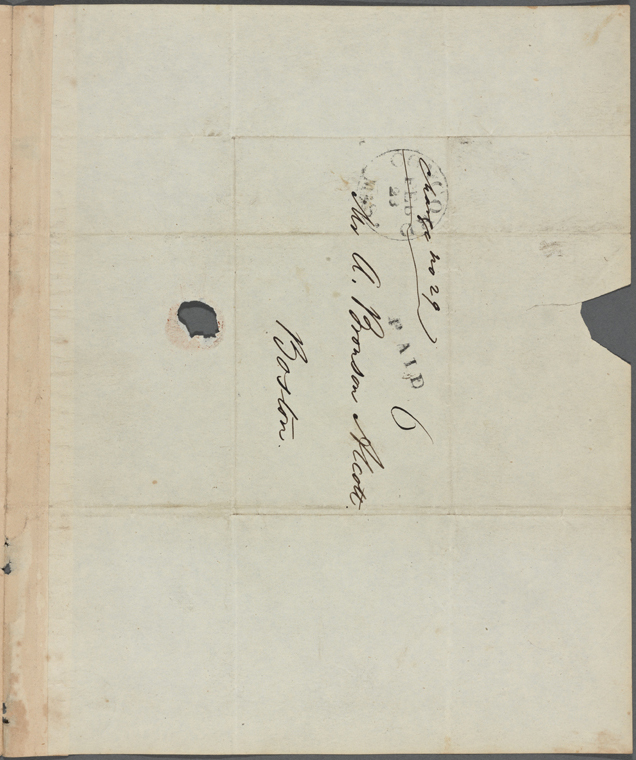 Charge no 29
FEB
PAID 6
Mr A. Bronson Alcott.
Boston.